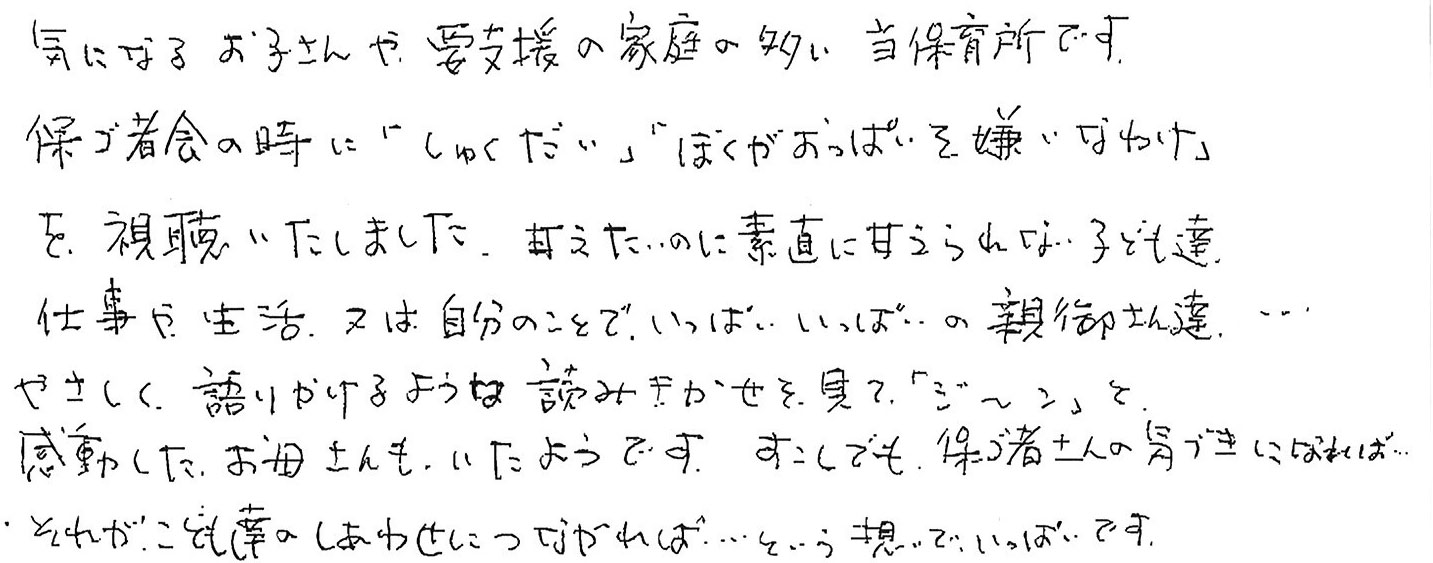 気になるお子さんや、要支援の家庭の多い当保育所です。
保ゴ者会の時に「しゅくだい」「ぼくがおっぱいを嫌いなわけ」
を、視聴いたしました。甘えたいのに素直に甘えられない子ども達、
仕事や、生活、又は自分のことで、いっぱいいっぱいの親御さん達、…
やさしく、語りかけるような読みきかせを、見て、「ジ〜ン」と、
感動した、お母さんも、いたようです。すこしでも、保ゴ者さんの気づきになれば…
それが、こども達のしあわせにつながれば…という想いで、いっぱいです。